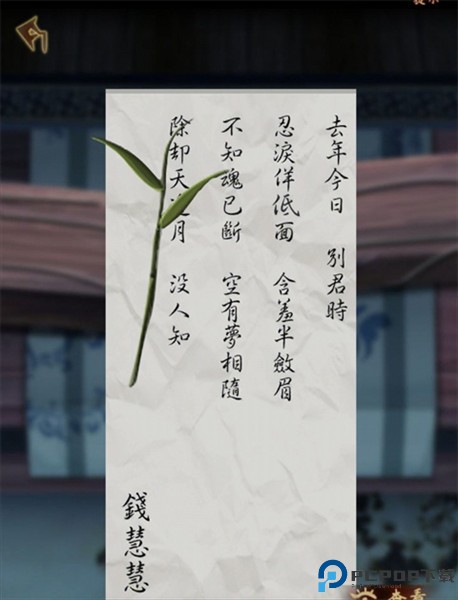 去年今日 別君時
忍淚佯低面 含羞半斂眉
不知魂已斷 空有夢相隨
除却天 月 没人知
錢慧慧
PCPOP下载
查看